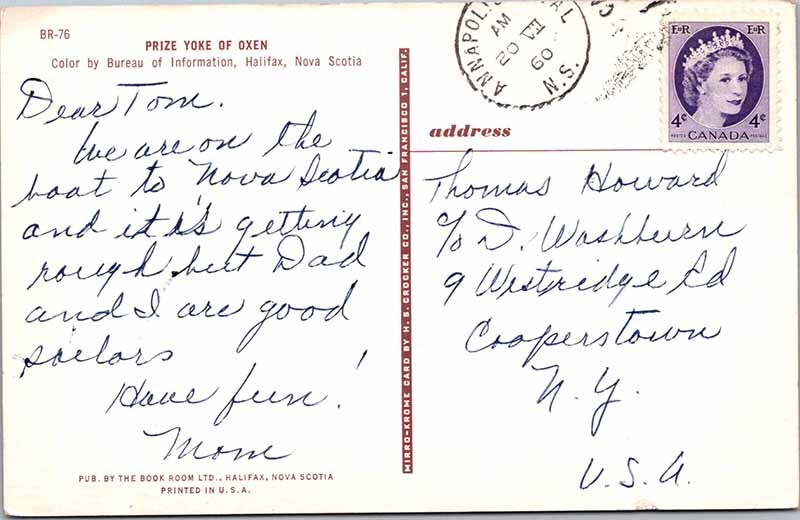 BR-76
PRIZE YOKE OF OXEN
Color by Bureau of Information, Halifax, Nova Scotia
Dear Tom.
We are on the
boat to Nova Scotia
and it is getting
rough but Dad
and I are good
sailors
Have fun!
Mom
PUB. BY THE BOOK ROOM LTD., HALIFAX, NOVA SCOTIA
PRINTED IN U.S.A.
MIRRO-KROME CARD BY H. S. CROCKER CO., INC., SAN FRANCISCO 1, CALIF.
ANNAPOLIS
AM
20 VI
60
N.S.
E II R E II R
4¢ 4¢
POSTES CANADA POSTAGE
address
Thomas Howard
c/o D. Washburn
9 Westridge Rd
Cooperstown
N.Y.
U.S.A.